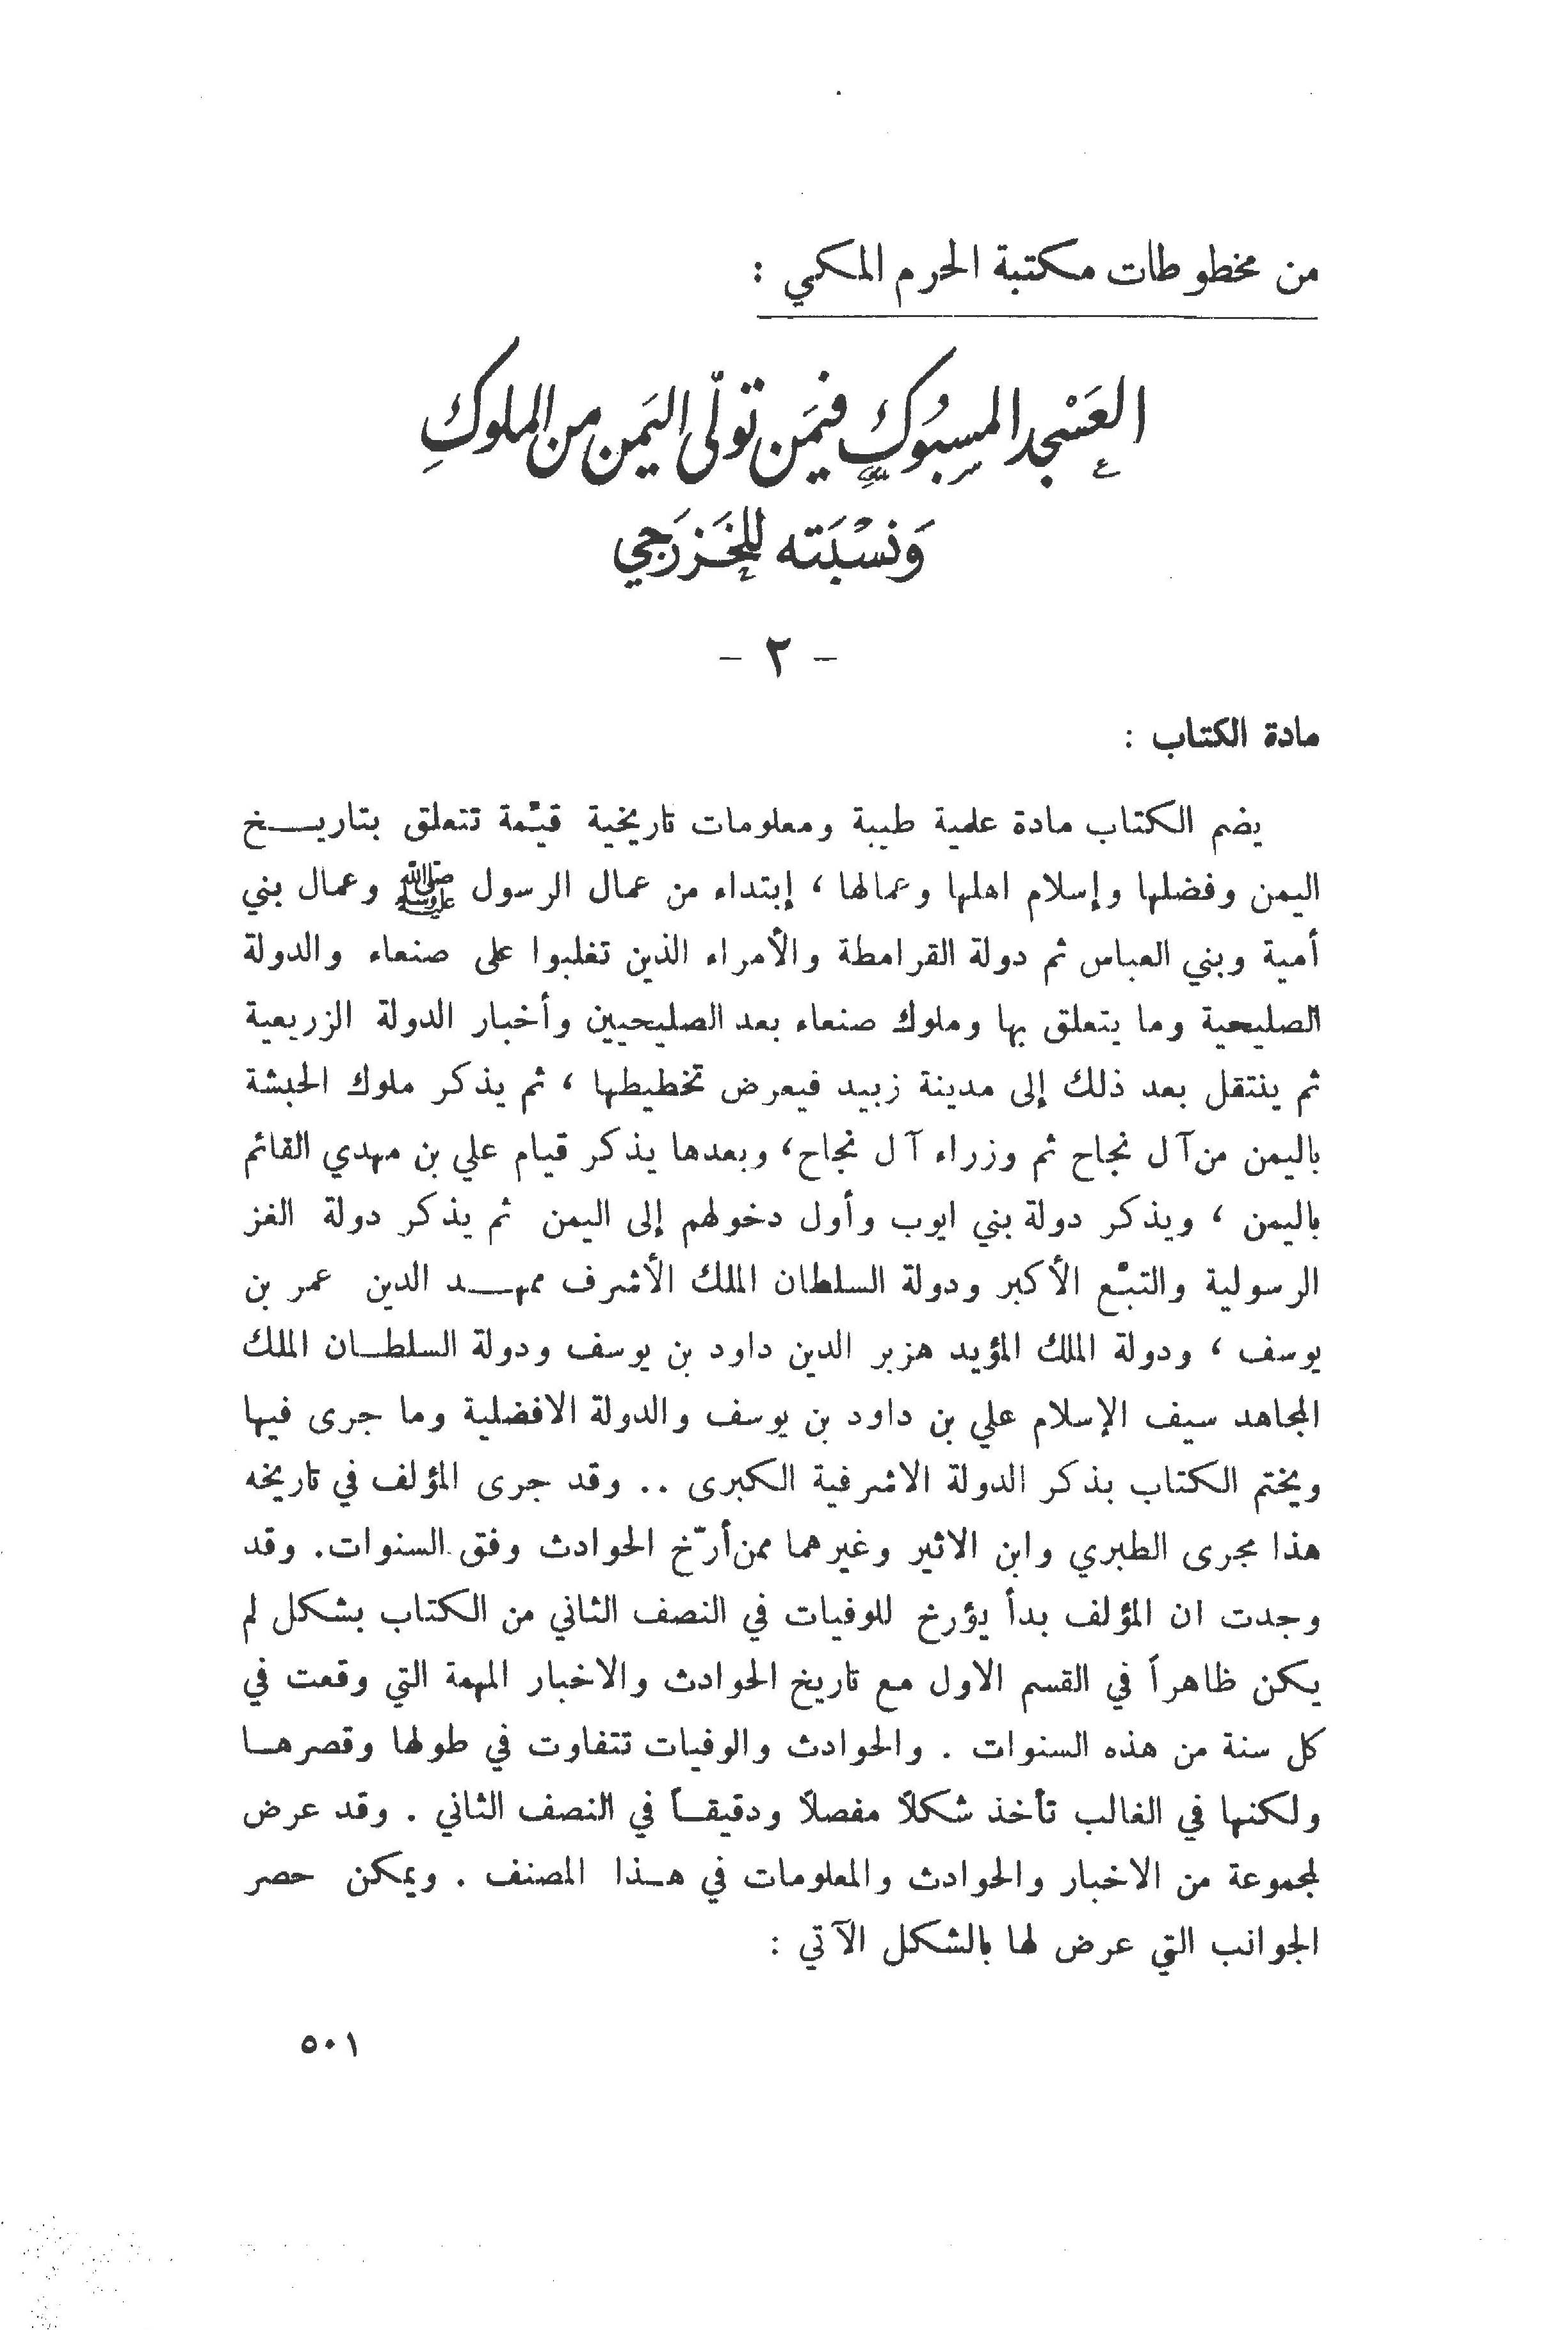 من مخطوطات مكتبة الحرم المكي :
العَسْجد المسبُوك فيمَن تولّى اليَمن من الملوكِ
وَنسْبَته للخَزرَجي
- ٢ -
مادة الكتاب :
يضم الكتاب مادة علمية طيبة ومعلومات تاريخية قيّمة تتعلق بتاريـــخ
اليمن وفضلها وإسلام اهلها وعمالها ، إبتداء من عمال الرسول ﷺ وعمال بني
أمية وبني العباس ثم دولة القرامطة والأمراء الذين تغلبوا على صنعاء والدولة
الصليحية وما يتعلق بها وملوك صنعاء بعد الصليحيين وأخبار الدولة الزريعية
ثم ينتقل بعد ذلك إلى مدينة زبيد فيعرض تخطيطها ، ثم يذكر ملوك الحبشة
باليمن من آل نجاح ثم وزراء آل نجاح، وبعدها يذكر قيام علي بن مهدي القائم
باليمن ، ويذكر دولة بني ايوب وأول دخولهم إلى اليمن ثم يذكر دولة الغز
الرسولية والتبّع الأكبر ودولة السلطان الملك الأشرف ممهـــد الدين عمر بن
يوسف ، ودولة الملك المؤيد هزبر الدين داود بن يوسف ودولة السلطـان الملك
المجاهد سيف الإسلام علي بن داود بن يوسف والدولة الافضلية وما جرى فيها
ويختم الكتاب بذكر الدولة الاشرفية الكبرى .. وقد جرى المؤلف في تاريخه
هذا مجرى الطبري وابن الاثير وغيرهما ممن أرّخ الحوادث وفق السنوات. وقد
وجدت ان المؤلف بدأ يؤرخ للوفيات في النصف الثاني من الكتاب بشكل لم
يكن ظاهراً في القسم الاول مع تاريخ الحوادث والاخبار المهمة التي وقعت في
كل سنة من هذه السنوات . والحوادث والوفيات تتفاوت في طولها وقصرهـا
ولكنها في الغالب تأخذ شكلاً مفصلاً ودقيقـاً في النصف الثاني . وقد عرض
لمجموعة من الاخبار والحوادث والمعلومات في هـذا المصنف . ويمكن حصر
الجوانب التي عرض لها بالشكل الآتي :
٥٠١